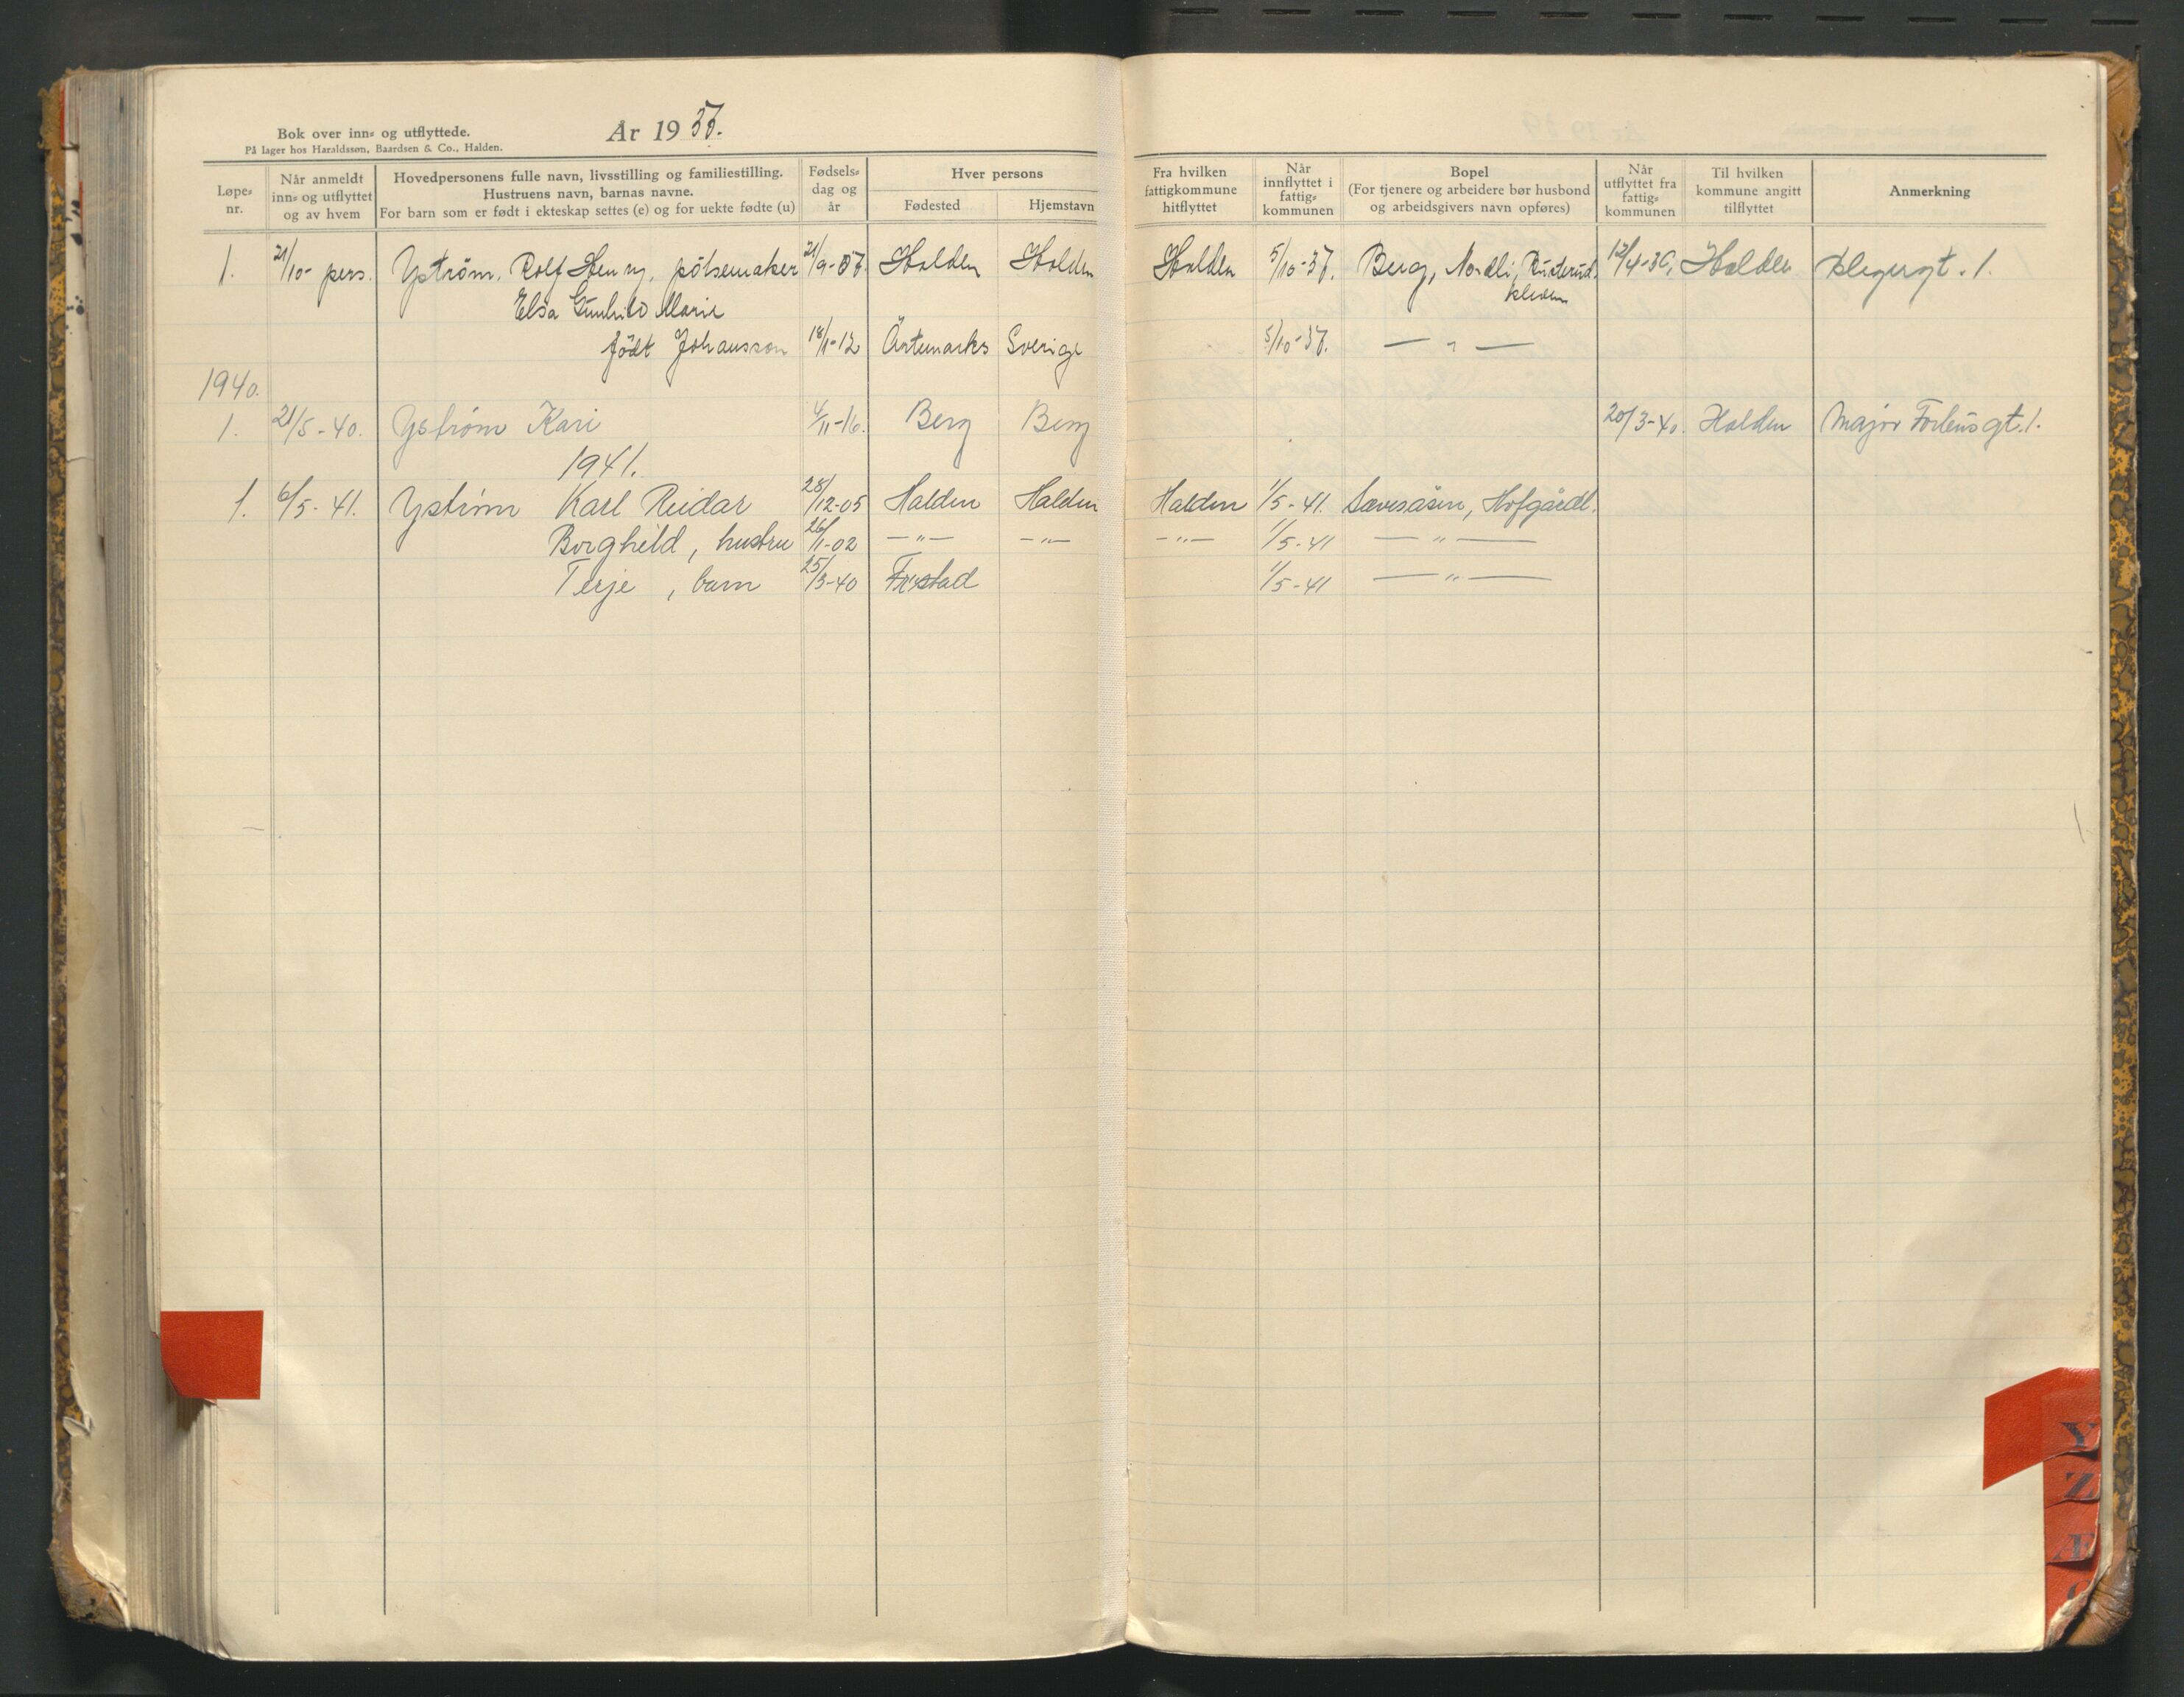 Bok over inn- og utflyttede.
På lager hos Haraldsson, Baardsen & Co., Halden.
År 1937.
Løpe-nr.
Når anmeldt inn- og utflyttet og av hvem
Hovedpersonens fulle navn, livsstilling og familiestilling. Hustruens navn, barnas navne. For barn som er født i ekteskap settes (e) og for uekte fødte (u)
Fødsels-dag og år
Hver persons
Fødested
Hjemstavn
Fra hvilken fattigkommune hitflyttet
Når innflyttet i fattig-kommunen
Bopel (For tjenere og arbeidere bør husbond og arbeidsgivers navn opføres)
Når utflyttet fra fattig-kommunen
Til hvilken kommune angitt tilflyttet
Anmerkning
1. 21/10- pers. Ystrøm, Rolf Henry, pølsemaker 21/9-07. Halden Halden Halden 5/10-37. Berg, Nordli, Halden gt. 1.
Elsa Gunhild Marie
født Johansson 18/1-12 Ärtemarks Sverige 5/10-37. — " —
1940.
1. 21/5-40. Ystrøm Kari 4/11-16. Berg Berg 20/3-40. Halden Major Forbus gt. 1.
1941.
1. 6/5-41. Ystrøm Karl Reidar 28/12-05 Halden Halden Halden 1/5-41. Hofgårdl.
Borghild, hustru 26/1-02 — " — — " — — " — 1/5-41 — " —
Terje, barn 25/3-40 1/5-41 — " —
Y
Z
Æ